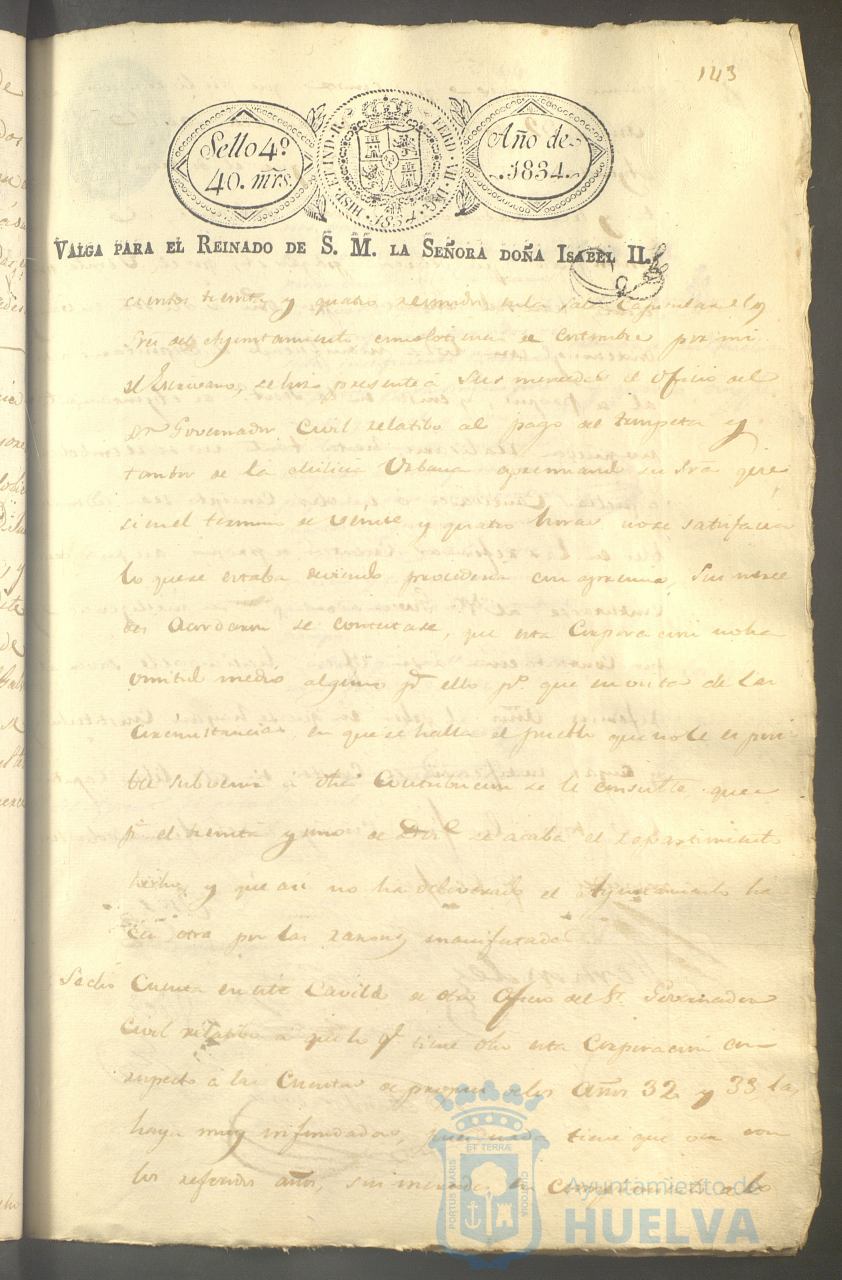 143
Sello 4º
40. mrs.
HISP. ET IND. R. FERD. VII
1834
Año de
1834.
VALGA PARA EL REINADO DE S. M. LA SEÑORA DOÑA ISABEL II.
cientos treinta y quatro reunidos en la Sala Capitular los
Sres del Ayuntamiento como lo tienen de costumbre por mi
el Escrivano, se hizo presente á sus mercedes el oficio del
Sr Governador Civil relatibo al pago del trompeta y
tambor de la Milicia Urbana
si en el termino de veinte y quatro horas no se satisfacia
lo que se estaba deviendo procederia con apremio, sus merce
des Acordaron se contestase, que esta Corporacion no ha
omitido medio alguno pª ello pº que en vista de las
circunstancias en que se halla el pueblo que no le es posi
ble subvenir a otra Contribucion se le consulte que
pª el treinta y uno de se acaba el repartimiento
hecho, y que asi no ha deliverado el Ayuntamiento ha
cer otra por las razones manifestadas
Se dio Cuenta en este Cavildo de otro Oficio del Sr. Governador
Civil relatibo a que lo qe tiene dho esta Corporacion con
respecto á las Cuentas de propios de los Años 32 y 33 las
haya muy infundadas, pues nada tiene que ver con
los referidos años, sus mercedes en
PORTUS MARIS ET TERRÆ CUSTODIA
Ayuntamiento de
HUELVA